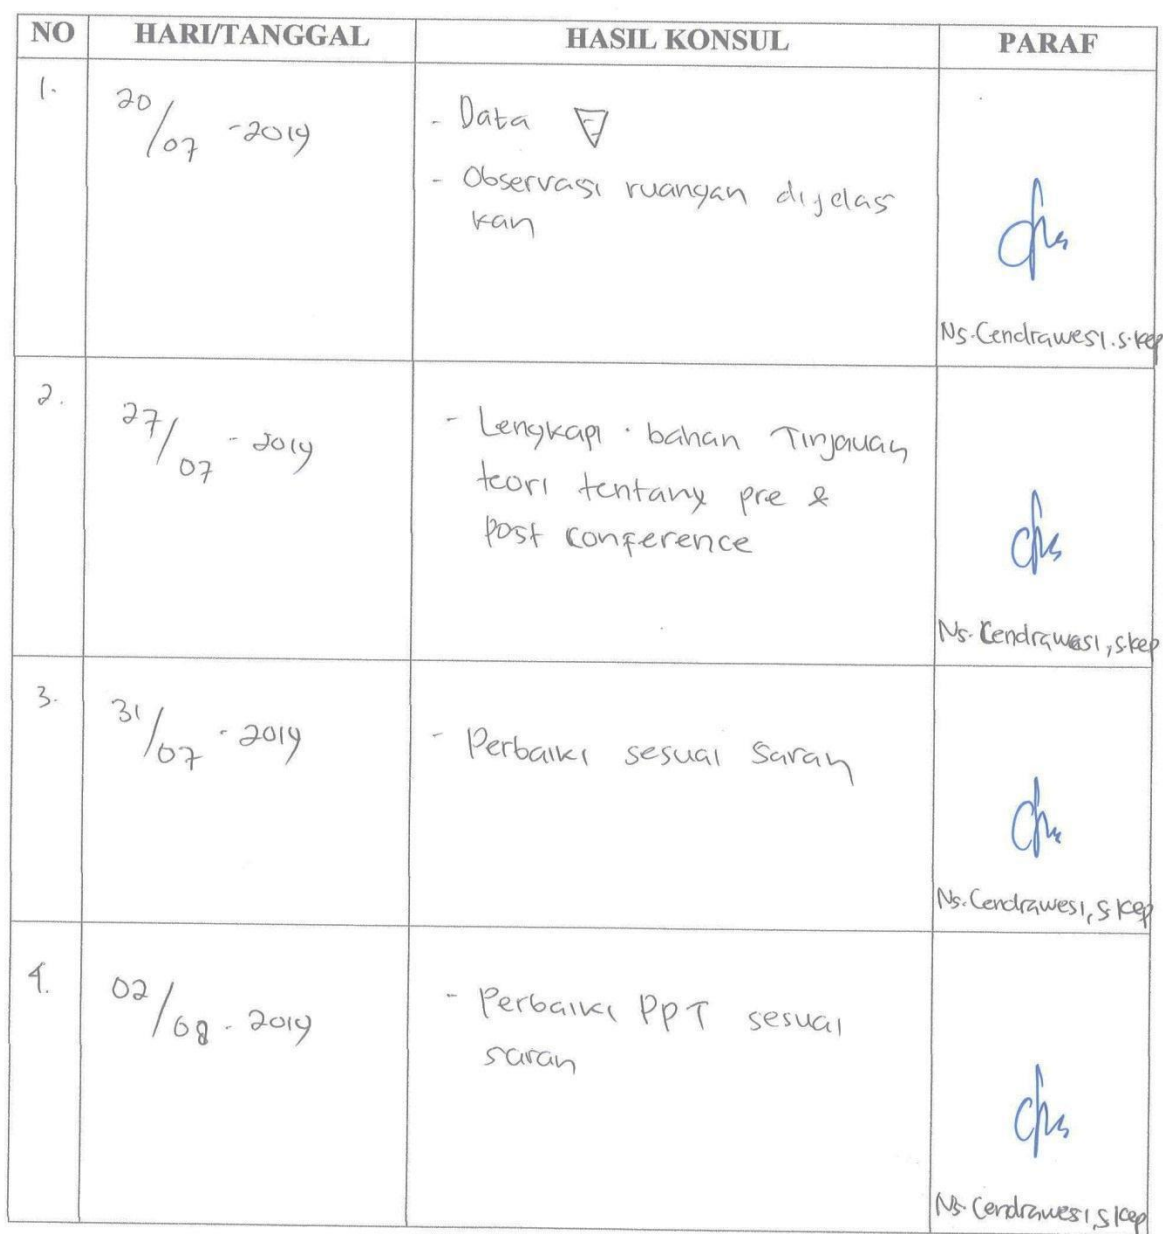 NO HARI/TANGGAL HASIL KONSUL PARAF
1. 20/07 - 2019
- Data
- Observasi ruangan dijelas
kan
Ns. Cendrawesi. S.kep
2. 27/07 - 2019
- Lengkapi bahan Tinjauan
teori tentang pre &
post conference
Ns. Cendrawesi, S.kep
3. 31/07 - 2019
- Perbaiki sesuai saran
Ns. Cendrawesi, S.kep
4. 02/08 - 2019
- Perbaiki PPT sesuai
saran
Ns. Cendrawesi, S.kep